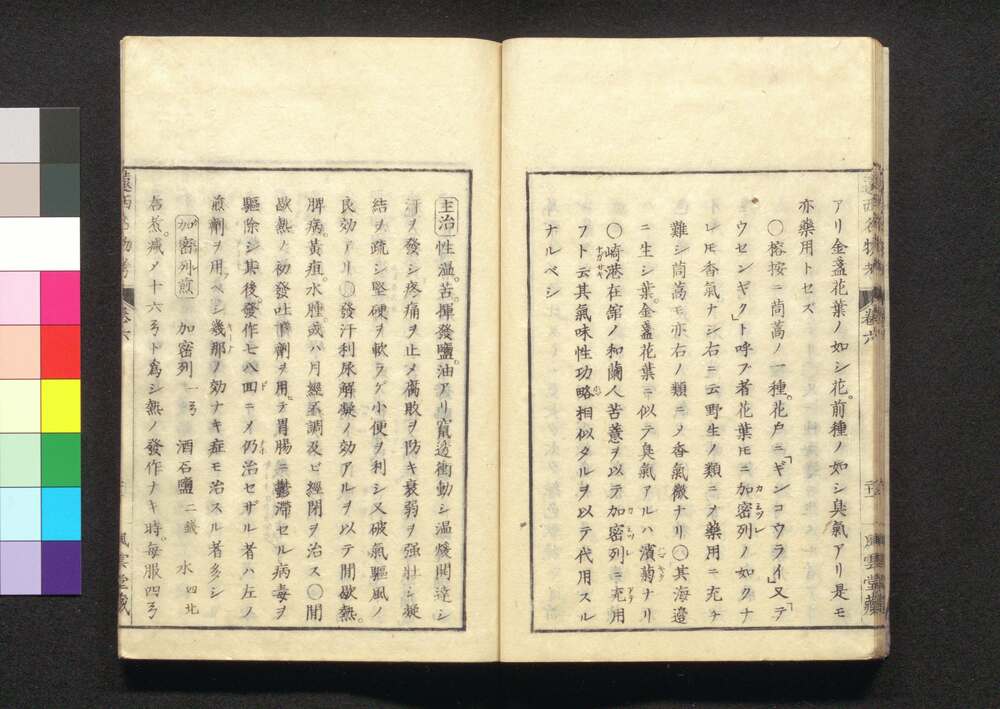 アリ金盞花葉ノ如シ花前種ノ如シ臭氣アリ是モ
亦藥用トセズ
〇榕按ニ茼蒿ノ一種花戸ニ「ギンコウライ」又「テ
ウセンギク」ト呼ブ者花葉𪜈ニ加密列ノ如クナ
レ𪜈香氣ナシ右ニ云野生ノ類ニ〆藥用ニ充テ
難シ茼蒿モ亦右ノ類ニ〆香氣微ナリ〇其海邉
ニ生シ葉金盞花葉ニ似テ臭氣アルハ濱菊ナリ
〇崎港在舘ノ和蘭人苦薏ヲ以テ加密列ニ充用
フト云其氣味性功略相似タルヲ以テ代用スル
ナルベシ
遠西名物考 卷六 風雲堂藏
主治 性溫。苦。揮發鹽。油アリ竄透衝動シ溫煖開達シ
汗ヲ發シ疼痛ヲ止メ腐敗ヲ防キ衰弱ヲ强壯シ凝
結ヲ疏シ堅硬ヲ軟ラゲ小便ヲ利シ又破氣驅風ノ
良効アリ〇發汗利尿解凝ノ効アルヲ以テ間歇熱。
脾病黃疸。水腫。或ハ月經不調及ビ經閉ヲ治ス〇間
歇熱ノ初發吐下劑ヲ用ヒテ胃腸ニ鬱滯セル病毒ヲ
驅除シ其後發作七八回ニ〆仍治セザル者ハ左ノ
煎劑ヲ用ベシ幾那ノ効ナキ症モ治スル者多シ
加密列煎 加密列 一 酒石鹽 二 水 四
右煮減〆十六ト爲シ熱ノ發作ナキ時。每服四
遠西名物考 卷六 風雲堂藏